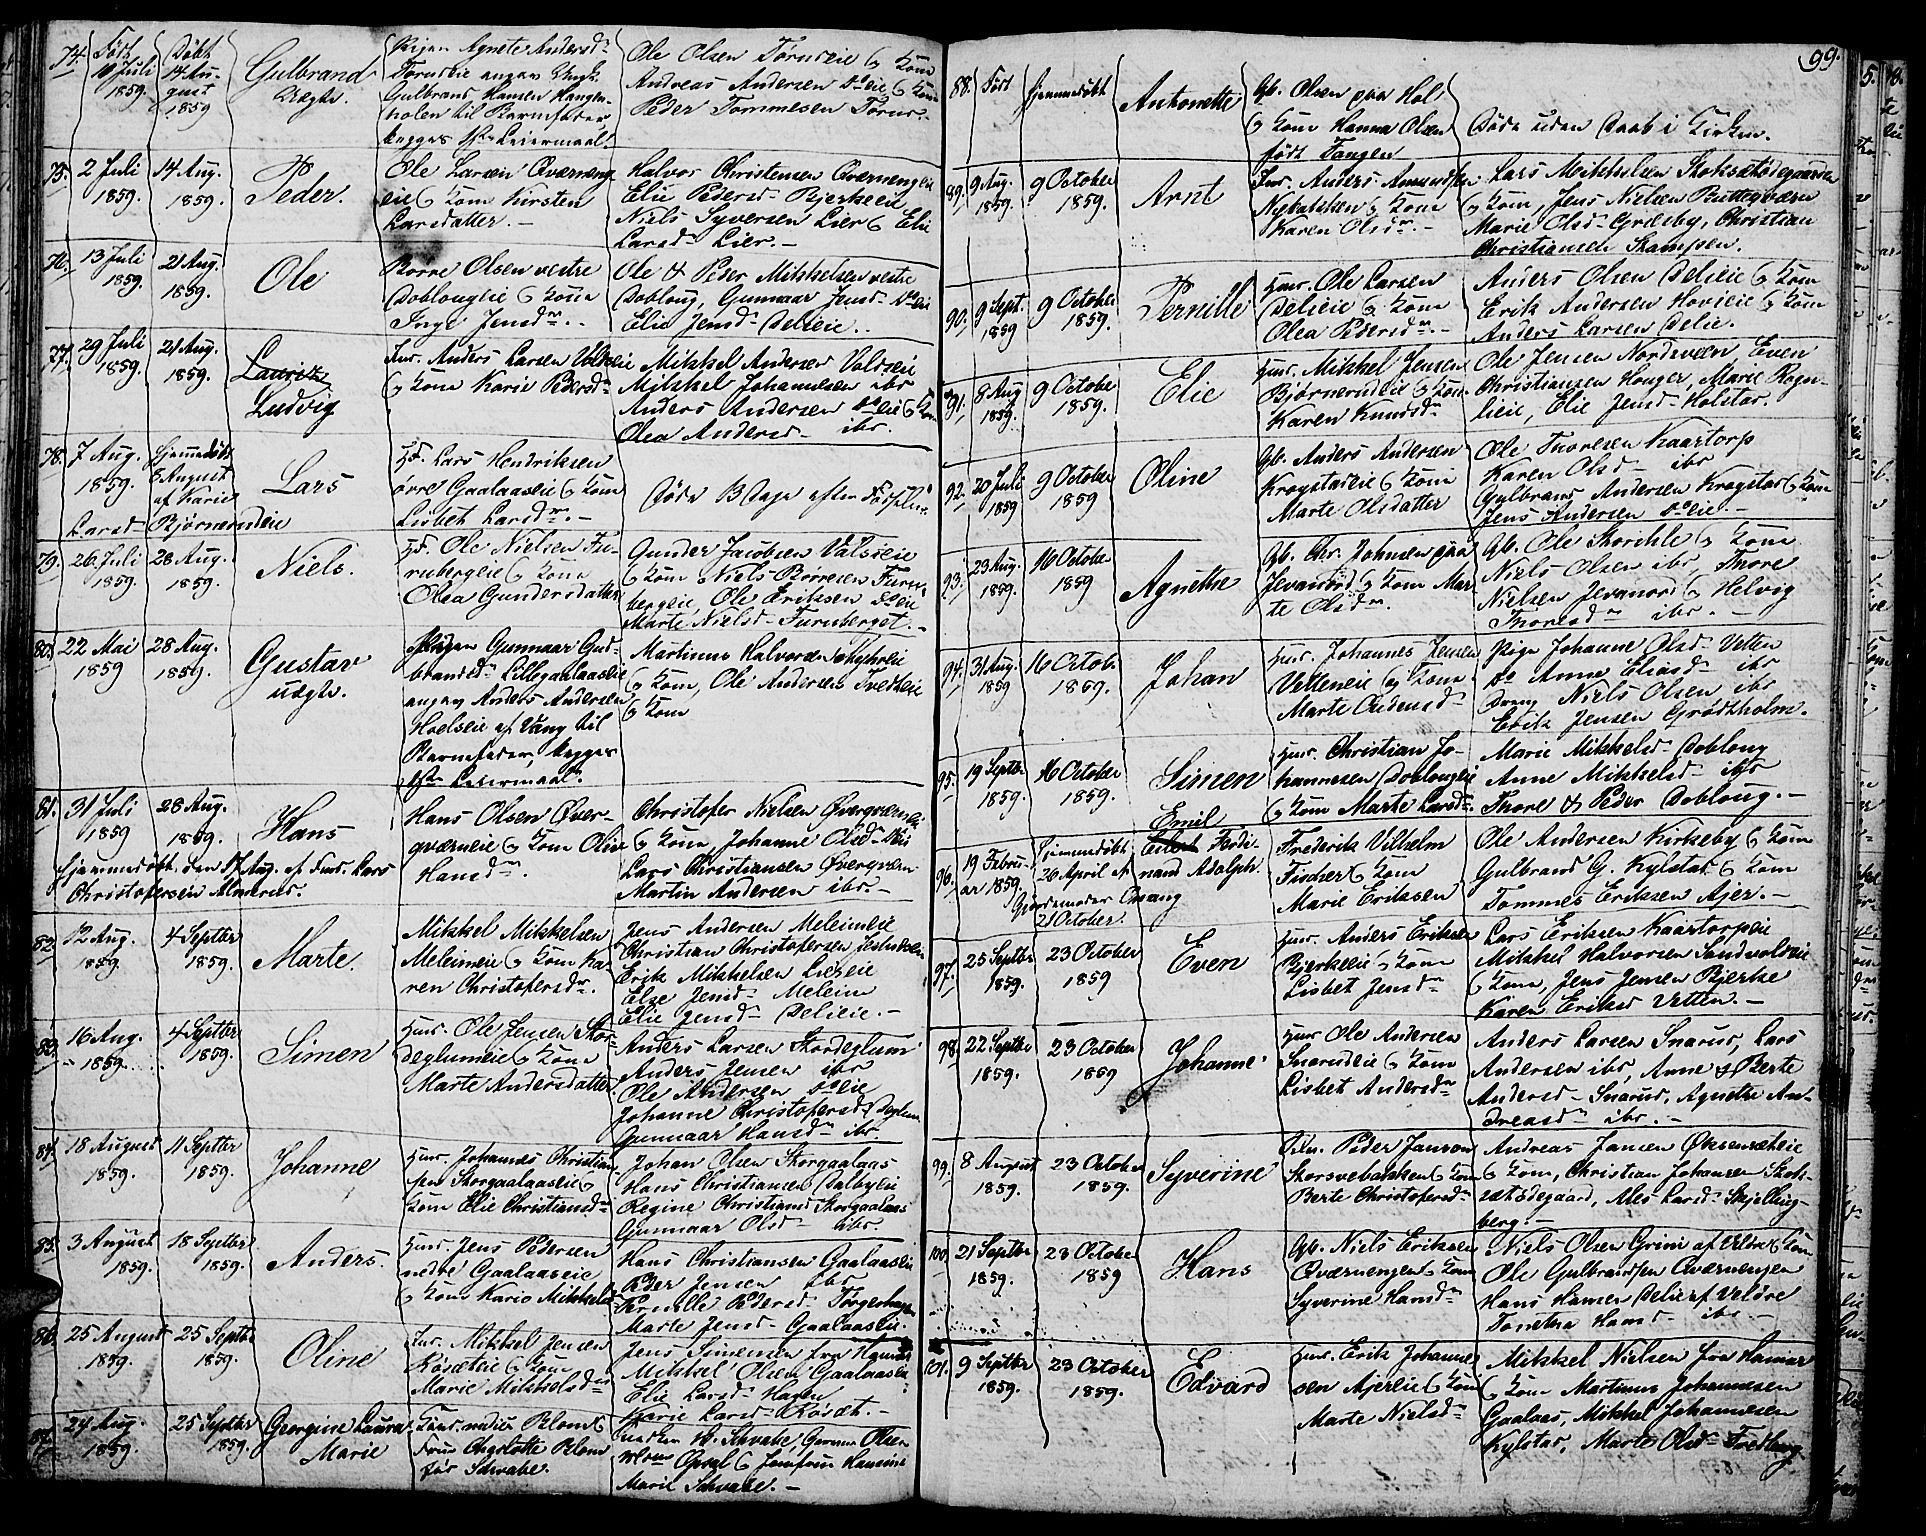 99.
74. Født 10 Juli 1859. Døbt 14 August 1859
Gulbrand
Uægte.
Pigen Agnete Andersdr
Gulbrand Hansen
holen til Barnefader
begges 1ste Leiermaal.
Ole Olsen Tørudeie og Kone
Andreas Andersen Doeie og Kone
Peder Tommesen Tørud.
75. 2 Juli 1859. 14 Aug. 1859.
Peder.
Ole Larsen Qværneng
eie og Kone Kirsten
Larsdatter.
Halvor Christensen Qværnengeie
Elie Pedersd Bjerkeeie
Niels Syversen Lier og Elie
Larsd Lier.
76. 13 Juli 1859. 21 Aug. 1859.
Ole
Borre Olsen vestre
Doblougeie og Kone
Inge Jensdr.
Ole & Peder Mikkelsen vestre
Dobloug, Gunnaar Jensd Doeie
Elie Jensd Delieie.
77. 29 Juli 1859. 21 Aug. 1859.
Lauritz
Ludvig
Anders Larsen Voldseie
og Kone Karie Pedersdr
Mikkel Andersen Voldseie
Mikkel Johannesen ibr
Anders Andersen Doeie og Kone
Olea Andersd ibr.
78. 7 Aug. 1859. Hjemmedøbt 8 August af Karie Larsd Bjørnerudeie
Lars
HF. Lars Hendriksen
øvre Gaalaaseie og Kone
Lisbet Larsdr.
Døde 3 Dage efter Fødselen
79. 26 Juli 1859. 28 Aug. 1859.
Niels.
HF. Ole Nielsen Fu-
rubergeie og Kone
Olea Gundersdatter
Gunder Jacobsen Valseie
og Kone Niels Børresen Furu-
bergeie, Ole Eriksen Doeie
Marte Nielsd Furuberget.
80. 22 Mai 1859 28 Aug. 1859.
Gustav
uægte.
Pigen Gunnaar Gud-
brandsdr Lillegaalaaseie
angav Anders Andersen
Hoelseie af Vang til
Barnefader, begges
1ste Leiermaal.
Martinus Halvorsen
og Kone, Ole Andersen
og Kone
81. 31 Juli 1859 28 Aug. 1859.
Hans
Hjemmedøbt den 17 Aug. af Lars
Christophersen Almerud.
Hans Olsen Øver-
qværneie og Kone Olive
Hansdr.
Christofer Nielsen Øverqværneie
og Kone, Johanne Olsd
Lars Christiansen Øverqvern
Martin Andersen ibr.
82. 12 Aug. 1859. 4 Septbr 1859.
Marte.
Mikkel Mikkelsen
Meleimeie og Kone Ka-
ren Christofersdr.
Jens Andersen Meleimeie
Christian Christofersen
Erik Mikkelsen Lieseie
Else Jensd Meleim
Elie Jensd Delieie.
83. 16 Aug. 1859. 4 Septbr 1859.
Simen
Huus. Ole Jensen Stor-
deglumeie og Kone
Marte Andersdatter
Anders Larsen Stordeglum
Anders Jensen ibr
Ole Andersen Doeie
Johanne Christofersd Deglum
Gunnaar Hansdr ibr.
84. 18 August 1859. 11 Septbr 1859.
Johanne
Huus. Johannes Christian-
sen Storgaalaaseie og
Kone Elie Christiansdr
Johan Olsen Storgaalaas
Hans Christiansen Dalbyeie
Regine Christiansd Storgaalaas
Gunnaar Olsd ibr.
85. 3 August 1859. 18 Septbr 1859.
Anders.
Huus. Jens Pedersen
nedre Gaalaaseie
og Kone Karie Mikkelsd
Hans Christiansen Gaalaaseie
Peder Jensen ibr
Pernille Pedersd
Marte Jensd Gaalaaseie.
86. 25 August 1859. 25 Septbr 1859.
Oline
Mikkel Jensen
Røsæteie og Kone
Marie Mikkelsdr
Jens Simensen fra Hamar
Mikkel Olsen Gaalaaseie
Elie Larsd Hagen
Marie Larsd Røsæt.
87. 24 Aug. 1859. 25 Septbr 1859.
Georgine Laura
Marie
Blom og
Frue Charlotte Blom
før Schwabe.
Schwabe,
Marie Schwabe.
88. Født Hjemmedøbt
Antonette
Gb. Olsen paa Hol
og Kone Hanna Olsen
født Tangen
Døde uden Daab i Kirken.
89. 9 Aug. 1859. 9 October 1859.
Arnt
Anders Amundsen
Nybakken og Kone
Karen Olsdr.
Lars Mikkelsen Stoksætødegaarden
og Kone, Jens Nielsen
Marie Olsd Græsby, Christian
Christiansen Stampen.
90. 9 Sept. 1859 9 October 1859.
Pernille
Huus. Ole Larsen
Delieie og Kone
Olea Pedersdr.
Anders Olsen Delieie og Kone
Erik Andersen Hovieie og Kone
Anders Larsen Delie.
91. 8 Aug 1859. 9 October 1859.
Elie
Huus. Mikkel Jensen
Bjørnerudeie og Kone
Karen Knudsdr
Ole Jensen Nordsveen, Even
Christiansen Honger, Marie Rogn-
lieie, Elie Jensd Holstad.
92. 20 Juli 1859 9 October 1859.
Oline
Gb. Anders Andersen
Krogstadeie og Kone
Marte Olsdatter
Ole Thoresen Kaartorp
Karen Olsd ibr
Gulbrand Andersen Krogstad og Kone
Jens Andersen Doeie.
93. 23 Aug. 1859. 16 October 1859
Agnethe
Gb. Chr. Johnsen paa
Jevanord og Kone Mar-
te Olsdr.
Gb. Ole Skorkle og Kone
Niels Olsen ibr, Thore
Nielsen Jevanord og Helvig
Thoresdr ibr.
94. 31 Aug. 1859 16 Octob. 1859.
Johan
Huus. Johannes Jensen
Vetteneie og Kone
Marte Evensd
Pige Johanne Olsd Vetten
Do Anne Eliasd ibr
Dreng Niels Olsen ibr
Erik Jensen Grødtholm.
95. 19 Septbr 1859. 16 October 1859.
Simen
Huus. Christian Jo-
hannesen Doblougeie
og Kone Marte Larsdr.
Marie Mikkelsd Doblong
Anne Mikkelsd ibr
Thore & Peder Doblong.
96. 19 Februar 1859. Hjemmedøbt 26 April af Gjordemoder Opsang 21 October.
Emil
Ferdi-
nand Adolph.
Frederik Vilhelm
Fischer og Kone
Marie Eriksen
Ole Andersen Kirkeby og Kone
Gulbrand G. Kylstad og Kone
Tommes Eriksen Ajer.
97. 25 Septbr 1859. 23 October 1859
Even
Huus. Anders Eriksen
Bjerkeeie og Kone
Lisbet Jensdr
Lars Eriksen Kaartorpeie
Mikkel Halvorsen Sandvoldeie
og Kone, Jens Jensen Bjerke
Karen Eriksd Vetten.
98. 22 Septbr 1859. 23 October 1859
Johanne
Huus Ole Andersen
Snarudeie og Kone
Lisbet Andersdr
Anders Larsen Snarud, Lars
Andersen ibr, Anne & Berte
Andersd Snarud, Agnethe An-
dreasdr ibr.
99. 8 August 1859. 23 October 1859.
Syverine
Peder Jansson
Skorsvebakken og Kone
Berte Christofersdr
Andreas Jansen Øksensæteie
og Kone, Christian Johansen Stok-
sætødegaard, Ales Larsd Skjelling-
berg.
100. 21 Septbr 1859. 23 October 1859
Hans
Gb. Niels Eriksen
Qværnengen og Kone
Syverine Hansdr
Niels Olsen Grini af Veldre og Kone
Ole Gulbrandsen Qværnengen
Hans Hansen Delie af Veldre
Tonetha Hansd ibr
101. 9 Septbr 1859. 23 October 1859.
Edvard
Huus. Erik Johannes-
sen Ajerseie og Kone
Marte Nielsdr
Mikkel Nielsen fra Hamar
og Kone Martinus Johannesen
Gaalaas, Mikkel Johannesen
Kylstad, Marte Olsd Fredberg